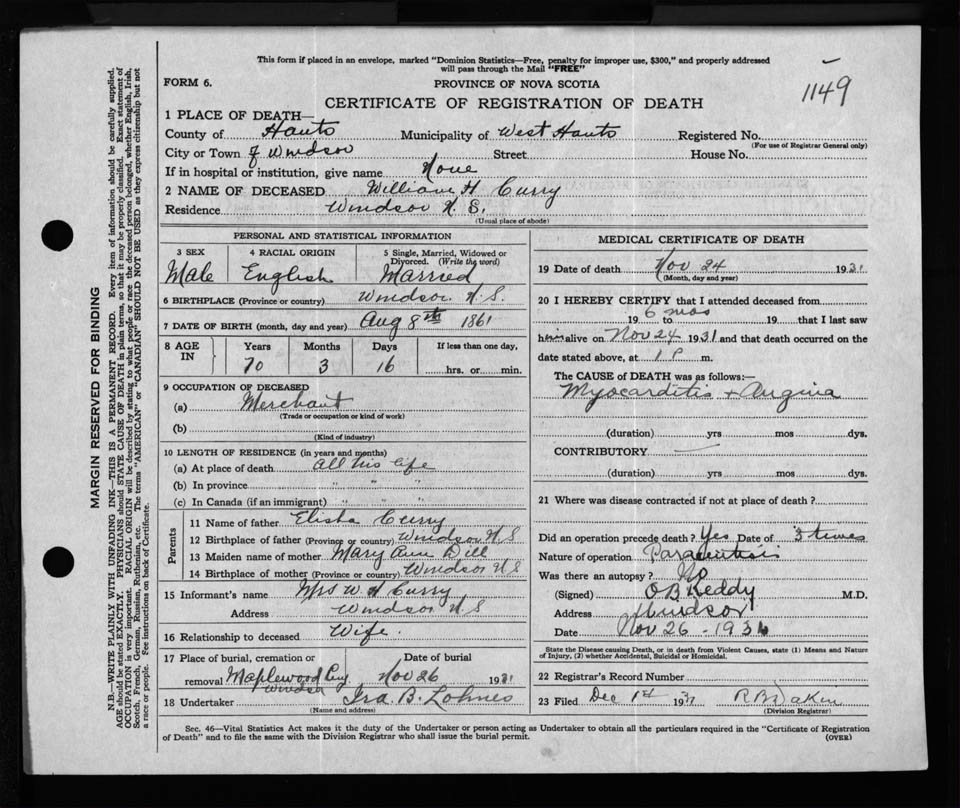 This form if placed in an envelope, marked "Dominion Statistics—Free, penalty for improper use, $300," and properly addressed
will pass through the Mail "FREE"
1149
FORM 6.
PROVINCE OF NOVA SCOTIA
CERTIFICATE OF REGISTRATION OF DEATH
1 PLACE OF DEATH—
County of Hants Municipality of West Hants Registered No.
(For use of Registrar General only)
City or Town of Windsor Street House No.
If in hospital or institution, give name None
2 NAME OF DECEASED William H Curry
Residence Windsor N. S.
(Usual place of abode)
PERSONAL AND STATISTICAL INFORMATION
3 SEX 4 RACIAL ORIGIN 5 Single, Married, Widowed or
Divorced. (Write the word)
Male English Married
6 BIRTHPLACE (Province or country) Windsor N. S.
7 DATE OF BIRTH (month, day and year) Aug 8th 1861
8 AGE IN Years Months Days If less than one day,
70 3 16 hrs. or min.
9 OCCUPATION OF DECEASED
(a) Merchant
(Trade or occupation or kind of work)
(b)
(Kind of industry)
10 LENGTH OF RESIDENCE (in years and months)
(a) At place of death all his life
(b) In province " " "
(c) In Canada (if an immigrant) " " "
Parents
11 Name of father Elisha Curry
12 Birthplace of father (Province or country) Windsor N S
13 Maiden name of mother Mary Ann Dill
14 Birthplace of mother (Province or country) Windsor N S
15 Informant's name Mrs W H Curry
Address Windsor N S
16 Relationship to deceased Wife.
17 Place of burial, cremation or Date of burial
removal Maplewood Cem Windsor Nov 26 1931
18 Undertaker Ira B. Lohnes
(Name and address)
MEDICAL CERTIFICATE OF DEATH
19 Date of death Nov 24 1931
(Month, day and year)
20 I HEREBY CERTIFY that I attended deceased from
6 mos
19 to 19 that I last saw
him alive on Nov 24 1931 and that death occurred on the
date stated above, at 1 P m.
The CAUSE of DEATH was as follows:—
Myocarditis + Angina
(duration) yrs mos dys.
CONTRIBUTORY
(duration) yrs mos dys.
21 Where was disease contracted if not at place of death?
Did an operation precede death? Yes Date of 3 times
Nature of operation Paracentisis
Was there an autopsy? No
(Signed) O B Keddy M.D.
Address Windsor
Date Nov 26 - 1931
State the Disease causing Death, or in death from Violent Causes, state (1) Means and Nature
of Injury, (2) whether Accidental, Suicidal or Homicidal.
22 Registrar's Record Number
23 Filed Dec 1st 1931
(Division Registrar)
Sec. 46—Vital Statistics Act makes it the duty of the Undertaker or person acting as Undertaker to obtain all the particulars required in the "Certificate of Registration
of Death" and to file the same with the Division Registrar who shall issue the burial permit.
(OVER)
MARGIN RESERVED FOR BINDING
N.B.—WRITE PLAINLY WITH UNFADING INK—THIS IS A PERMANENT RECORD. Every item of information should be carefully supplied.
AGE should be stated EXACTLY. PHYSICIANS should STATE CAUSE OF DEATH in plain terms, so that it may be properly classified. Exact statement of
OCCUPATION is very important. RACIAL ORIGIN will be described by stating to what people or race the deceased person belonged, whether English, Irish,
Scotch, French, German, Russian, Ruthenian, etc. The terms "AMERICAN" or "CANADIAN" SHOULD NOT BE USED as they express citizenship but not
a race or people. See instructions on back of Certificate.